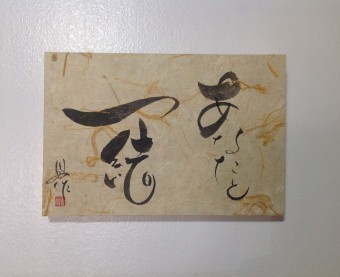 あなたと
一緒